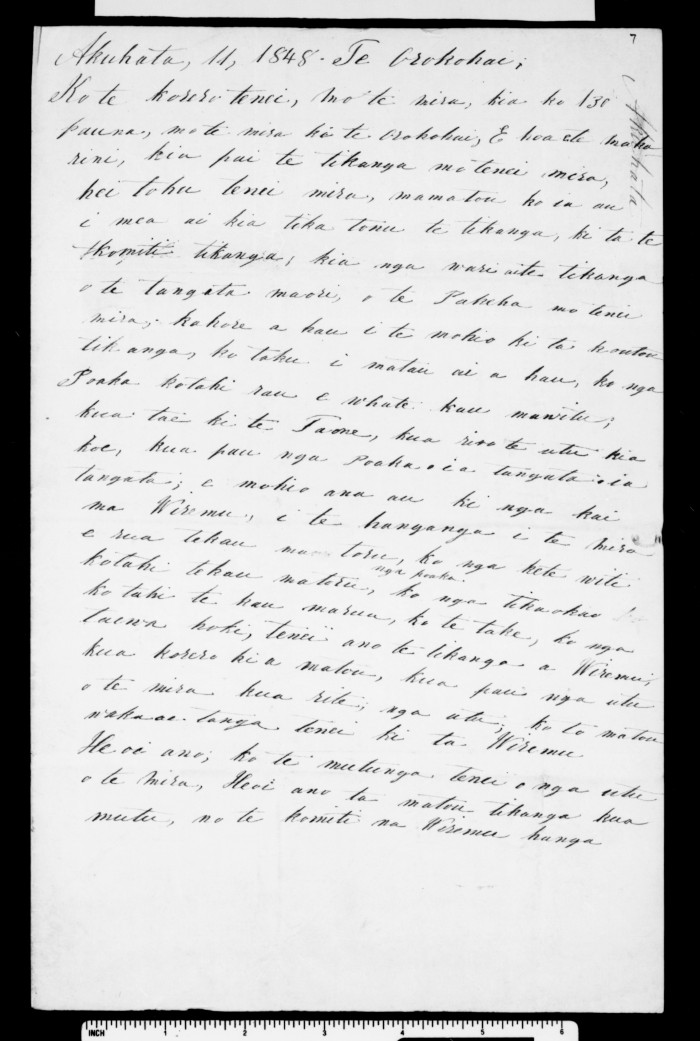 7
Akuhata, 11, 1848. Te Orokohai;
Akuhata
Ko te korero tenei, mo te mira, kia ko 130
pauna, mo te mira ki te Orokohai, E hoa e te maka
rini, kia pai te tikanga mo tenei mira,
hei tohu tenei mira, mamatou ko ia au
i mea ai kia tika tonu te tikanga, ki ta te
komiti tikanga; kia nga wari aite tikanga
o te tangata maori, o te Pakeha mo tenei
mira; kahore a hau i te mohio ki ta koutou
tikanga, ko taku i matau ai a hau, ko nga
Poaka kotahi rau e whate kau mawitu;
kua tae ki te Taone, kua riro te utu kia
koe, kua pau nga Poaka o ia tangata o ia
tangata; e mohio ana au ki nga kai
ma Wiremu, i te hanganga i te mira
e rua tekau ma toru, ko nga kete witi
nga poaka.
kotahi tekau matoru, ko nga tikaokao
ko tahi te kau marua, ko te take, ko nga
taewa hoki, tenei ano te tikanga a Wiremu,
kua korero ki a matou, kua pau nga utu
o te mira kua rite; nga utu; ko to matou
wakaae tanga tenei ki ta Wiremu
He oi ano; ko te mutunga tenei o nga utu
o te mira, Heoi ano ta matou tikanga kua
mutu, no te komiti na Wiremu hanga
INCH 1 2 3 4 5 6